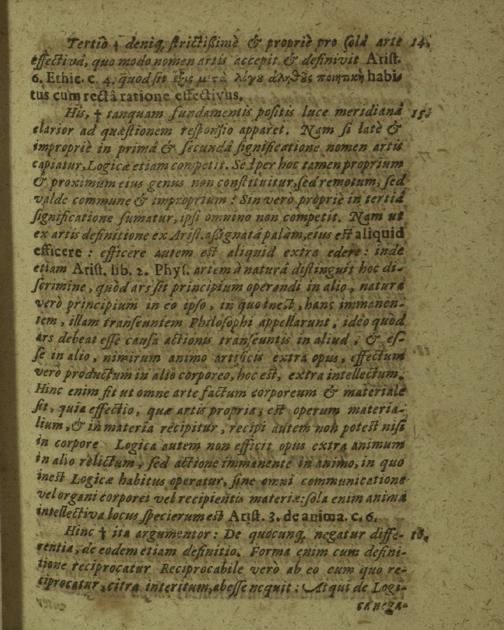 Tertiò † deniq, strictißimè & propriè pro solâ arte 14.
effectivâ, quo modo nomen artis accepit & definivit Arist.
6. Ethic. c. 4. quod sit ἕξις μετὰ λόγου ἀληθοῦς ποιητικὴ habi-
tus cum rectâ ratione effectivus.
His, † tanquam fundamentis positis luce meridianâ 15.
clarior ad quæstionem responsio apparet. Nam si latè &
impropriè in primâ & secundâ significatione nomen artis
capiatur, Logicæ etiam competit. Sed per hoc tamen proprium
& proximum eius genus non constituitur, sed remotum, sed
valde commune & improprium: Sin verò propriè in tertiâ
significatione sumatur, ipsi omnino non competit. Nam ut
ex artis definitione ex Arist. assignatâ palàm, eius est aliquid
efficere: efficere autem est aliquid extra edere: inde
etiam Arist. lib. 2. Phys. artem à naturâ distinguit hoc di-
scrimine, quòd ars sit principium operandi in alio, natura
verò principium in eo ipso, in quo inest, hanc immanen-
tem, illam transeuntem Philosophi appellarunt, ideo quòd
ars debeat esse causa actionis transeuntis in aliud, & es-
se in alio, nimirum animo artificis extra opus, effectum
verò productum in alio corporeo, hoc est, extra intellectum.
Hinc enim fit ut omne arte factum corporeum & materiale
sit, quia effectio, quæ artis propria, est operum materia-
lium, & in materia recipitur, recipi autem non potest nisi
in corpore Logica autem non efficit opus extra animum
in alio relictum, sed actione immanente in animo, in quo
inest Logicæ habitus operatur, sine omni communicatione
vel organi corporei vel recipientis materiæ: sola enim anima
intellectiva locus specierum est Arist. 3. de anima. c. 6.
Hinc † ita argumentor: De quocunq, negatur diffe- 16.
rentia, de eodem etiam definitio. Forma enim cum defini-
tione reciprocatur Reciprocabile verò ab eo cum quo re-
ciprocatur, citra interitum, abesse nequit: Atqui de Logi-
ca nega-